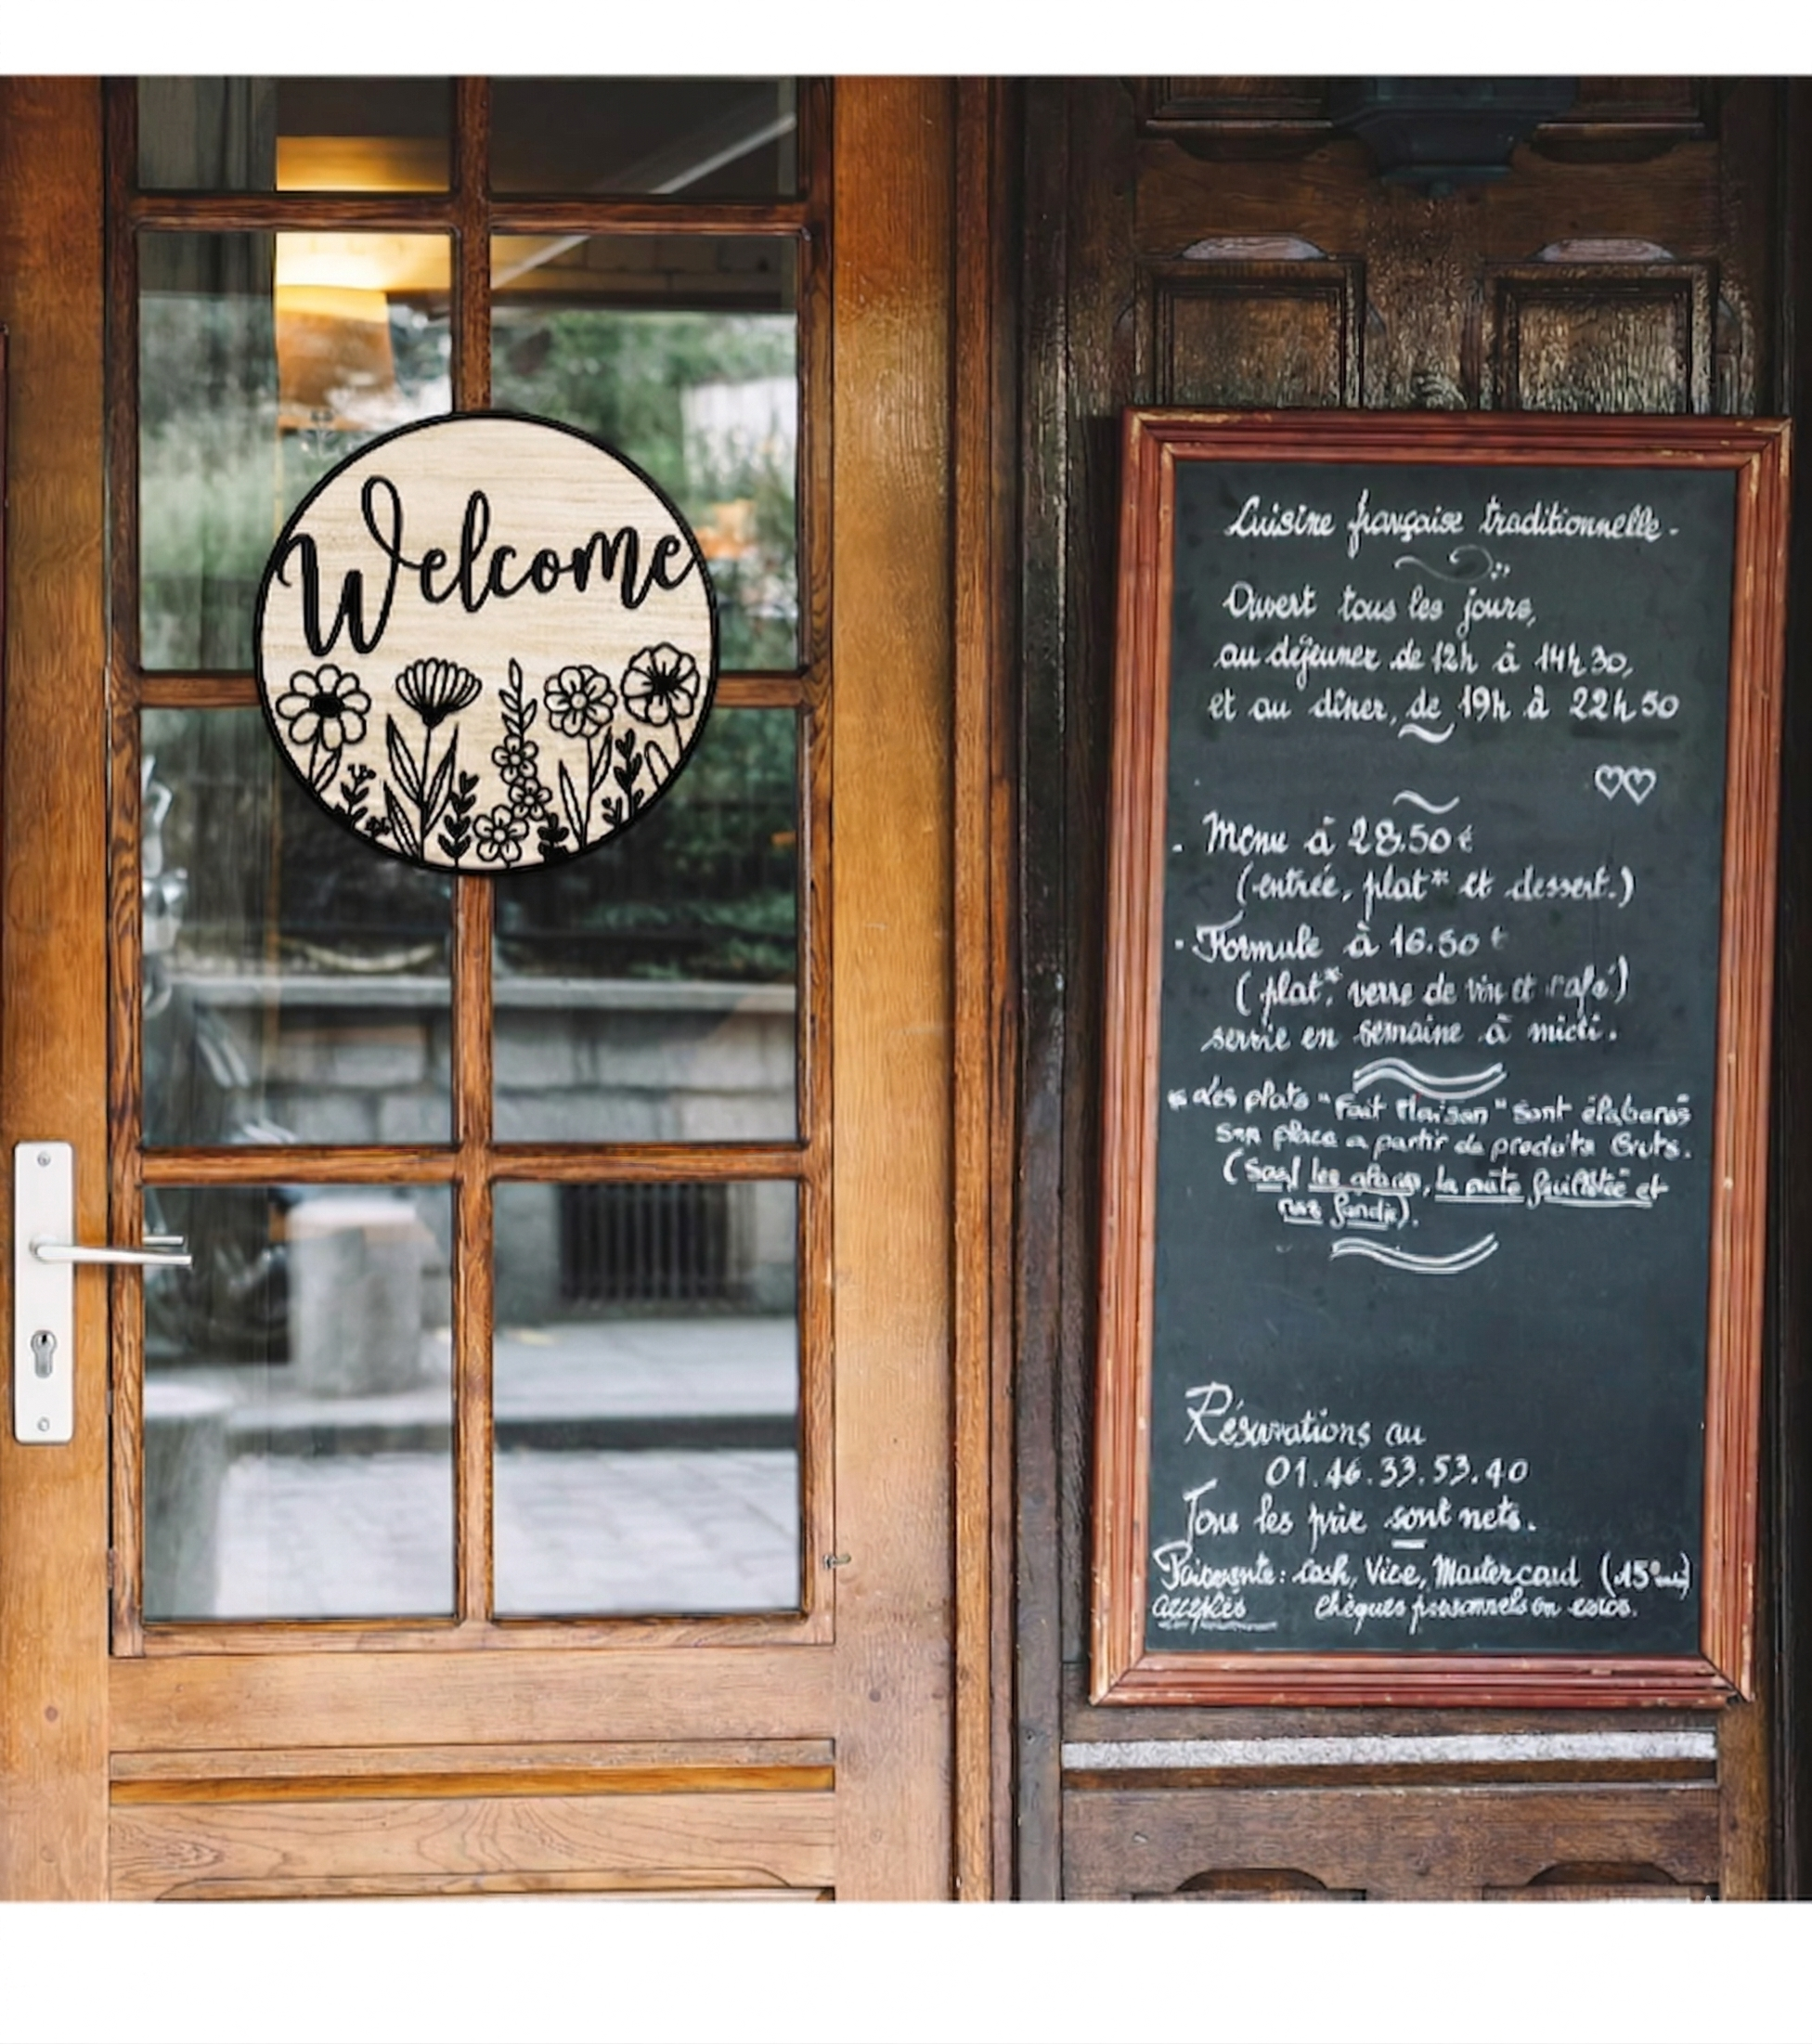 Welcome
Cuisine française traditionnelle.
Ouvert tous les jours,
au déjeuner de 12h à 14h30,
et au dîner, de 19h à 22h50
. Menu à 28.50€
(entrée, plat* et dessert.)
. Formule à 16.50 €
(plat*, verre de vin et café)
servie en semaine à midi.
* Les plats "Fait Maison" sont élaborés
place a partir de produits bruts.
(Sauf les glaces, la pâte feuilletée et
).
Réservations au
01.46.33.53.40
Tous les prix sont nets.
: Cash, Vise, Mastercard (15
acceptés chèques personnels en euros.